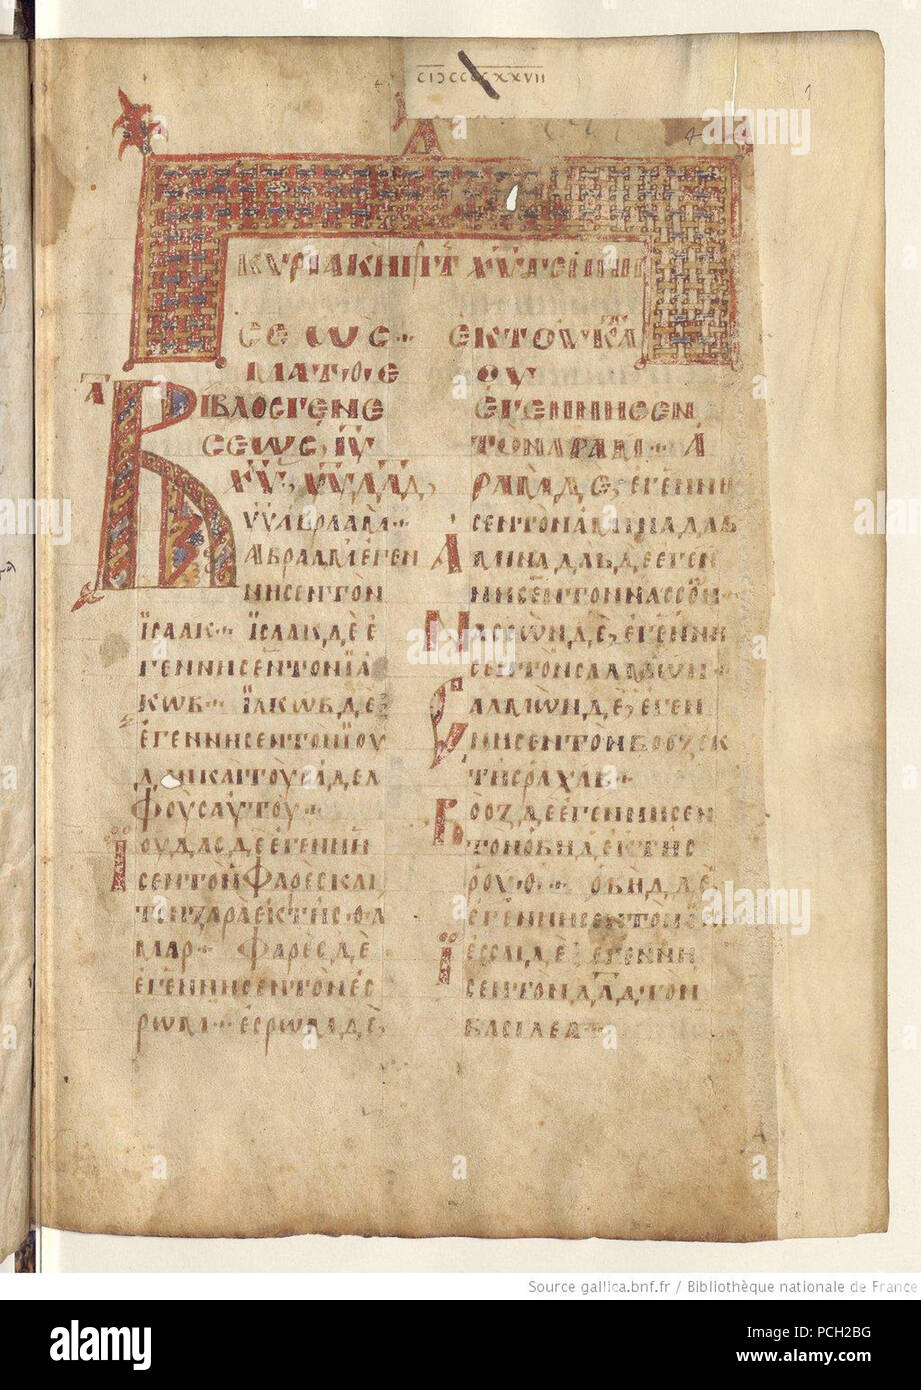 ΚΥΡΙΑΚΗ
ΣΕΩΣ
ΜΑΤΘ
ΒΙΒΛΟΣΓΕΝΕ
ΣΕΩΣ ΙΥ
ΧΥ ΥΥ ΔΑΔ
ΥΥ ΑΒΡΑΑΜ
ΑΒΡΑΑΜ ΕΓΕΝ
ΝΗΣΕΝΤΟΝ
ΙΣΑΑΚ ΙΣΑΑΚΔΕΕ
ΓΕΝΝΗΣΕΝΤΟΝΙΑ
ΚΩΒ ΙΑΚΩΒΔΕ
ΕΓΕΝΝΗΣΕΝΤΟΝΙΟΥ
ΔΑΝΚΑΙΤΟΥΣΑΔΕΛ
ΦΟΥΣΑΥΤΟΥ
ΙΟΥΔΑΣΔΕΕΓΕΝΝΗ
ΣΕΝΤΟΝΦΑΡΕΣΚΑΙ
ΤΟΝΖΑΡΑΕΚΤΗΣΘΑ
ΜΑΡ ΦΑΡΕΣΔΕ
ΕΓΕΝΝΗΣΕΝΤΟΝΕΣ
ΡΩΜ ΕΣΡΩΜΔΕ
ΕΚΤΟΥΚΑ
ΟΥ
ΕΓΕΝΝΗΣΕΝ
ΤΟΝΑΡΑΜ Α
ΡΑΜΔΕ ΕΓΕΝΝΗ
ΣΕΝΤΟΝΑΜΙΝΑΔΑΒ
ΑΜΙΝΑΔΑΒΔΕΕΓΕΝ
ΝΗΣΕΝΤΟΝΝΑΣΣΩΝ
ΝΑΣΣΩΝΔΕ ΕΓΕΝΝΗ
ΣΕΝΤΟΝΣΑΛΜΩΝ
ΣΑΛΜΩΝΔΕ ΕΓΕΝ
ΝΗΣΕΝΤΟΝΒΟΟΖΕΚ
ΤΗΣΡΑΧΑΒ
ΒΟΟΖΔΕΕΓΕΝΝΗΣΕΝ
ΤΟΝΩΒΗΔΕΚΤΗΣ
ΡΟΥΘ ΩΒΗΔΔΕ
ΕΓΕΝΝΗΣΕΝΤΟΝ
ΙΕΣΣΑΙΔΕ ΕΓΕΝΝΗ
ΣΕΝΤΟΝΔΑΔΤΟΝ
ΒΑΣΙΛΕΑ
Source gallica.bnf.fr / Bibliothèque nationale de France
alamy
Image ID: PCH2BG
www.alamy.com